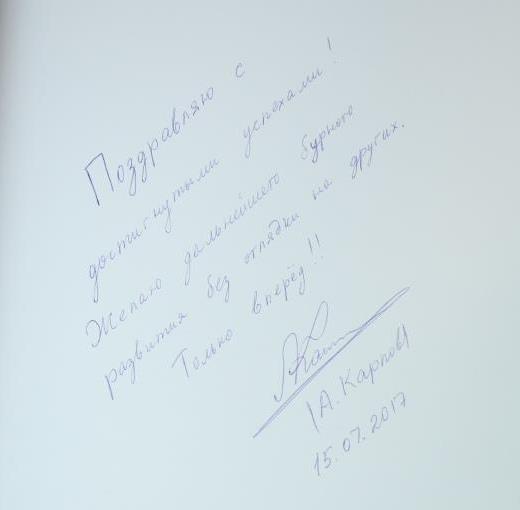 Поздравляю с
достигнутыми успехами!
Желаю дальнейшего бурного
развития без оглядки на других.
Только вперёд!!
/А. Карпов/
15.07.2017